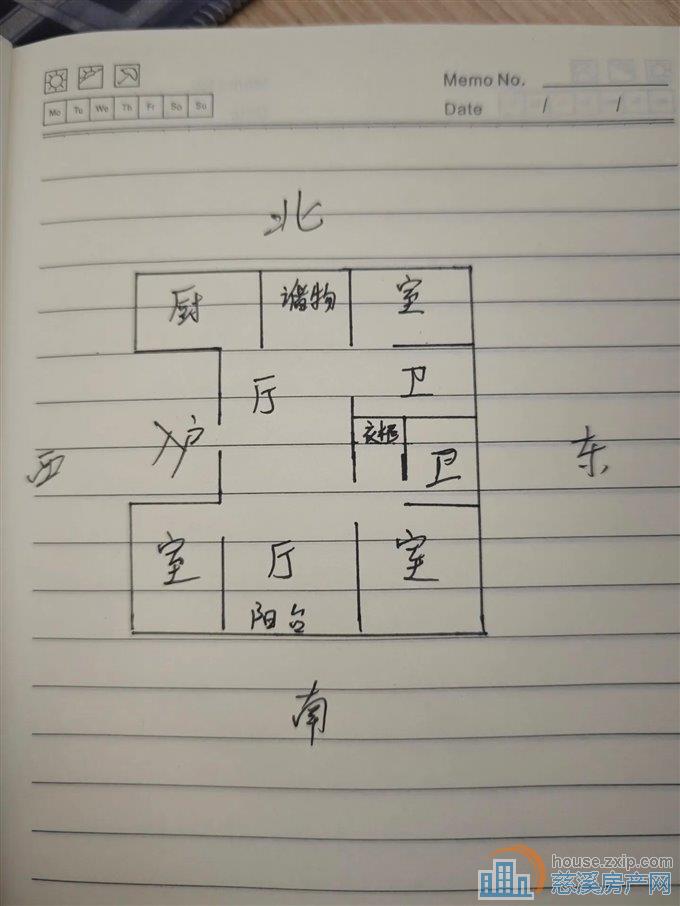 Memo No.
Mo Tu We Th Fr Sa Su
Date / /
北
厨 储物 室
厅 卫
入户 衣柜
西 卫 东
室 厅 室
阳台
南
house.zxip.com
慈溪房产网